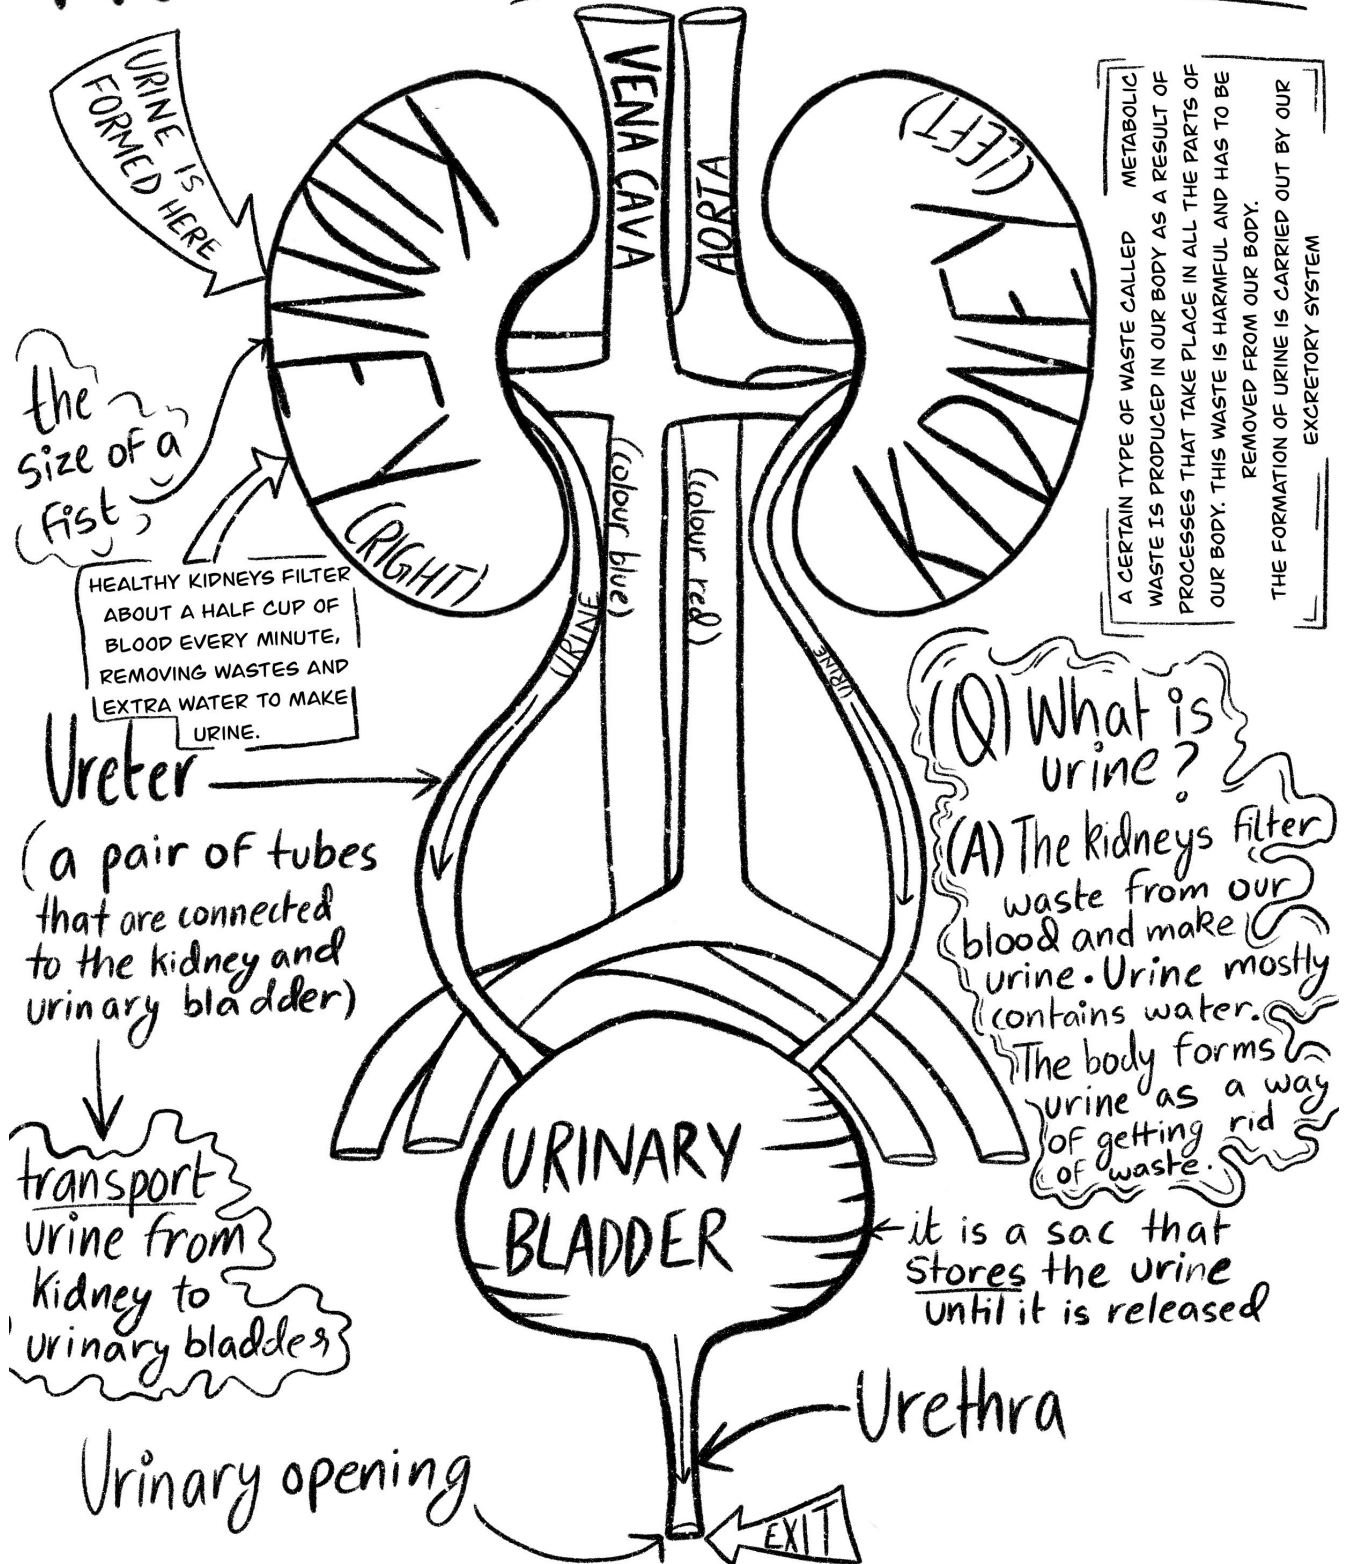 URINE IS
FORMED HERE
VENA CAVA
AORTA
KIDNEY
(RIGHT)
KIDNEY
(LEFT)
A CERTAIN TYPE OF WASTE CALLED METABOLIC
WASTE IS PRODUCED IN OUR BODY AS A RESULT OF
PROCESSES THAT TAKE PLACE IN ALL THE PARTS OF
OUR BODY. THIS WASTE IS HARMFUL AND HAS TO BE
REMOVED FROM OUR BODY.
THE FORMATION OF URINE IS CARRIED OUT BY OUR
EXCRETORY SYSTEM
the
size of a
fist
HEALTHY KIDNEYS FILTER
ABOUT A HALF CUP OF
BLOOD EVERY MINUTE,
REMOVING WASTES AND
EXTRA WATER TO MAKE
URINE.
(colour blue)
(colour red)
URINE
URINE
Ureter
(a pair of tubes
that are connected
to the kidney and
urinary bladder)
transport
urine from
kidney to
urinary bladder
(Q) What is
urine?
(A) The kidneys filter
waste from our
blood and make
urine. Urine mostly
contains water.
The body forms
urine as a way
of getting rid
of waste.
URINARY
BLADDER
it is a sac that
stores the urine
until it is released
Urethra
Urinary opening
EXIT